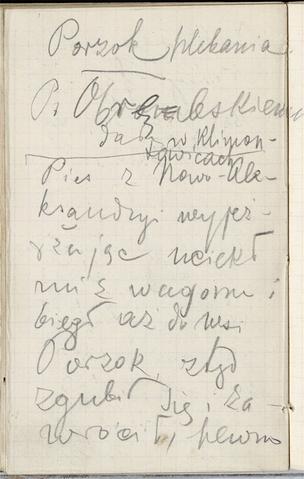 Porzok plekania
P. Obrębskiemu
dać w Klimon-
towicach
Pies z Nowo-Ale-
ksandryi wyjeż-
żając uciekł
mi z wagonu i
biegł aż do wsi
Porzok, stąd
zgubił się i za-
wrócił, pewno